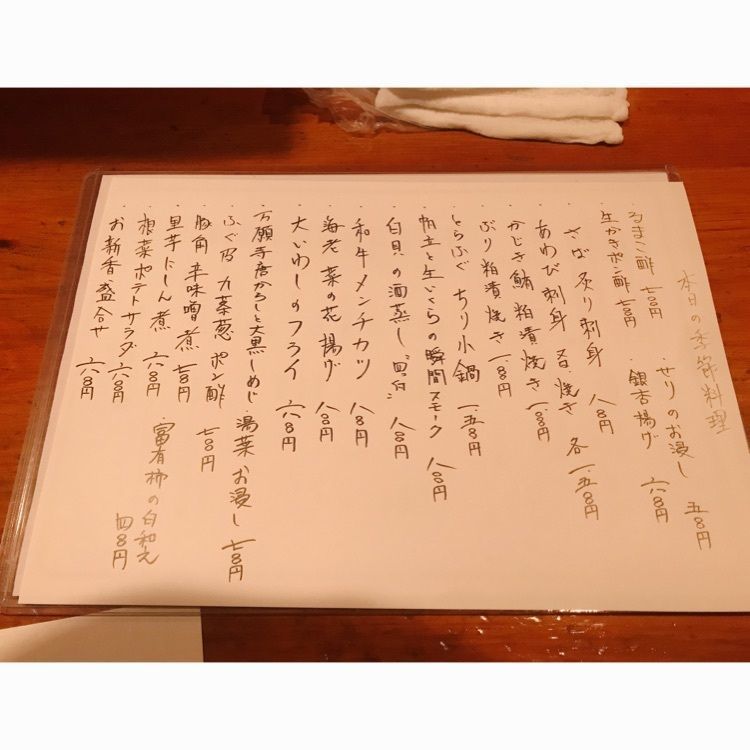 本日の季節料理
・せりのお浸し 五〇〇円
・銀杏揚げ 六〇〇円
・なまこ酢 七〇〇円
・生かきポン酢 七〇〇円
・さば炙り刺身 八〇〇円
・あわび刺身 又は焼き 各一、五〇〇円
・かじき鮪粕漬焼き 一、〇〇〇円
・ぶり粕漬焼き 一、〇〇〇円
・とらふぐちり小鍋 一、五〇〇円
・帆立と生いくらの瞬間スモーク 八〇〇円
・白貝の酒蒸し 八〇〇円
・和牛メンチカツ 八〇〇円
・海老菜の花揚げ 八〇〇円
・大いわしのフライ 六〇〇円
・万願寺唐がらしと大黒しめじ・湯葉お浸し 七〇〇円
・ふぐ皮九条葱ポン酢 七〇〇円
・豚角辛味噌煮 七〇〇円
・里芋にしん煮 六〇〇円
・根菜ポテトサラダ 六〇〇円
・お新香盛合せ 六〇〇円
・富有柿の白和え 四〇〇円